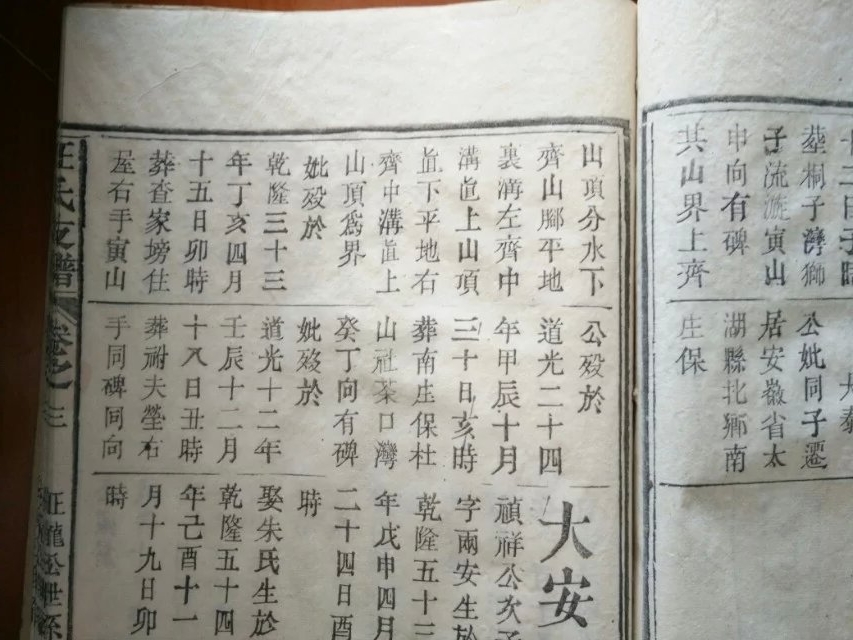 葬桐子灣獅
子流漇寅山
申向有碑
共山界上齊
公妣同子遷
居安徽省太
湖縣北鄉南
庄保
山頂分水下
齊山腳平地
裏溝左齊中
溝直上山項
直下平地右
齊中溝直上
山頂爲界
妣歿於
乾隆三十三
年丁亥四月
十五日卯時
葬查家塝住
屋右手寅山
公歿於
道光二十四
年甲辰十月
三十日亥時
葬南庄保杜
山社茶口灣
癸丁向有碑
妣歿於
道光十二年
壬辰十二月
十八日丑時
葬祔夫塋右
手同碑同向
大安
禎祥公次子
字兩安生於
乾隆五十三
年戊申四月
二十四日酉
時
娶朱氏生於
乾隆五十四
年己酉十一
月十九日卯
時
汪氏支譜
卷之三